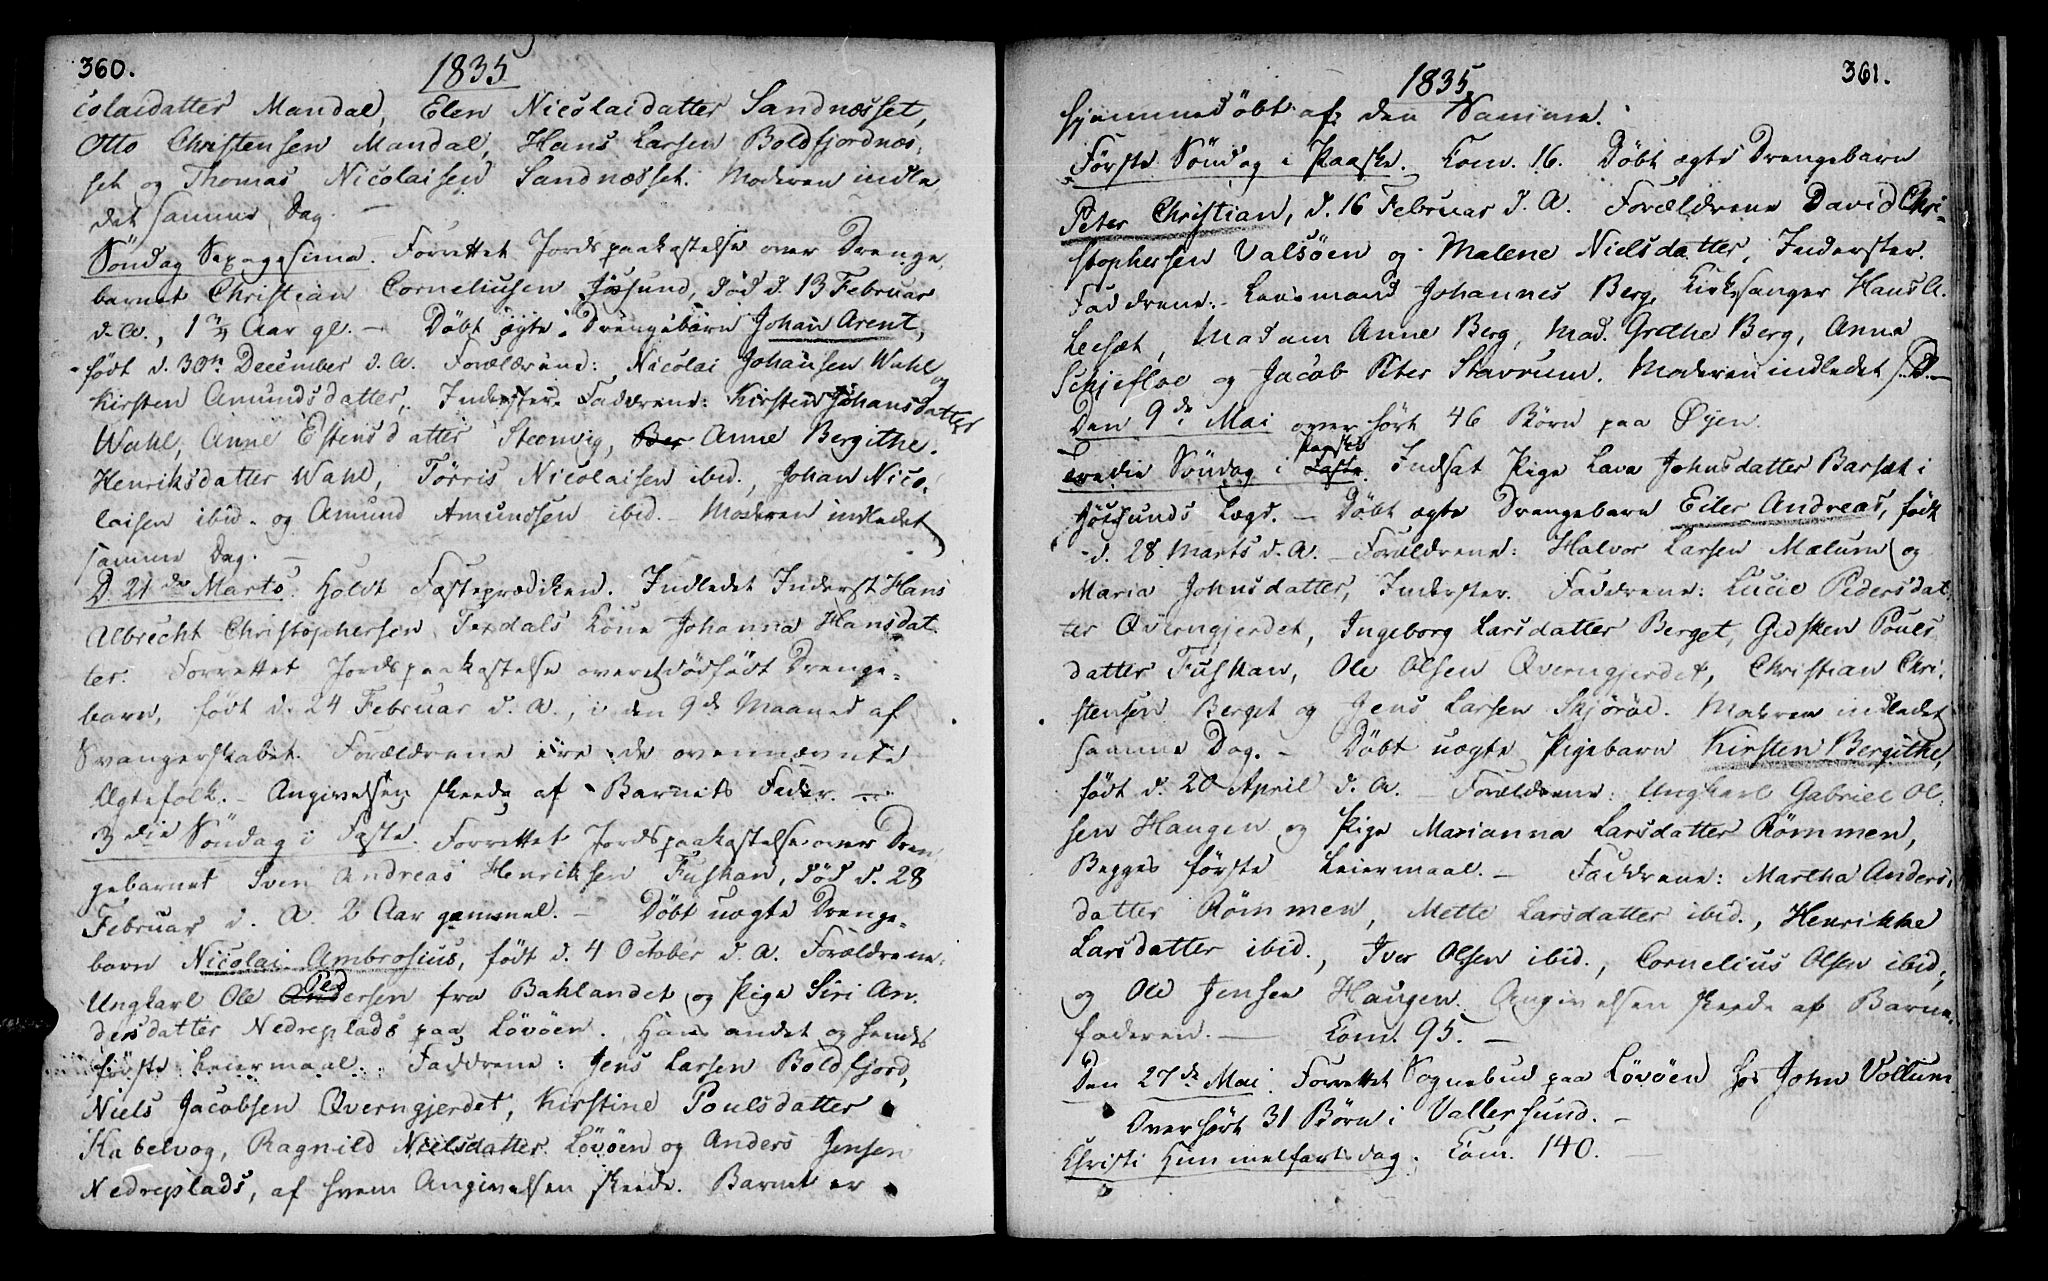 360.
1835
colaidatter Mandal, Elen Nicolaidatter Sandnesset,
Otto Christensen Mandal, Hans Larsen Boldfjordnes-
set og Thomas Nicolaisen Sandnæsset. Moderen indle
det samme Dag. —
Söndag Sexagesima. Forrettet Jordspaakastelse over Drenge
barnet Christian Corneliusen Jøsund, död d. 13 Februar
d. A., 1 Aar gl. — Döbt ægte Drengebarn Johan Arent,
födt d. 30te December d. A. Forældrene: Nicolai Johansen Wahl og
Kirsten Amundsdatter, Inderster. Faddrene: Kirsten Johansdatter
Wahl, Anne Estensdatter Steenvig, Ber Anne Bergithe
Henriksdatter Wahl, Törris Nicolaisen ibid., Johan Nico-
laisen ibid. og Amund Amundsen ibid. — Moderen indledet
samme Dag. —
D. 21de Marts. Holdt Fasteprædiken. Indledet Inderst Hans
Albrecht Christophersen Texdals Kone Johanna Hansdat-
ter. Forrettet Jordspaakastelse over dödfödt Drenge-
barn, födt d. 24 Februar d. A., i den 9de Maaned af
Svangerskabet. Forældrene ere de ovennævnte
Ægtefolk. — Angivelsen skeede af Barnets Fader. —
3die Söndag i Faste. Forrettet Jordspaakastelse over Dren
gebarnet Sven Andreas Henriksen Fuskan, död d. 28
Februar d. A. 2 Aar gammel. — Döbt uægte Drenge-
barn Nicolai Ambrosius, födt d. 4 October d. A. Forældrene:
Ped
Ungkarl Ole Andersen fra Baklandet og Pige Siri An-
dersdatter Nedreplads paa Lövöen. Hans andet og hendes
förste Leiermaal. Faddrene: Jens Larsen Boldfjord,
Niels Jacobsen Qverngjerdet, Kirstine Poulsdatter
Kabelvog, Ragnild Nielsdatter Lövöen og Anders Jensen
Nedreplads, af hvem Angivelsen skeede. Barnet er
361.
1835
hjemmedöbt af den Samme.
Förste Söndag i Paaske. Kom. 16. Döbt ægte Drengebarn
Peter Christian, d. 16 Februar d. A. Forældrene David Chri-
stophersen Valsöen og Malene Nielsdatter, Inderster.
Faddrene: Leensmand Johannes Berg, Kirksanger Hans A.
Leesæt, Madam Anne Berg, Mad. Grethe Berg, Anna
Schjefloe og Jacob Peter Stavrum. Moderen indledet s. D. —
Den 9de Mai overhört 46 Börn paa Øyen.
Paaske
Tredie Söndag i Faste. Indsat Pige Lava Johnsdatter Barsæt i
Jössunds Lægd. — Döbt ægte Drengebarn Eiler Andreas, födt
d. 28 Marts d. A. — Forældrene: Halvor Larsen Mælum og
Maria Johnsdatter, Inderster. Faddrene: Lucie Pedersdat-
ter Qverngjerdet, Ingeborg Larsdatter Berget, Gidsken Pouls
datter Fuskan, Ole Olsen Qverngjerdet, Christian Chri-
stensen Berget og Jens Larsen Skjöröe. Moderen indledet
samme Dag. — Döbt uægte Pigebarn Kirsten Bergithe,
födt d. 20 April d. A. — Forældrene: Ungkarl Gabriel Ol-
sen Haugen og Pige Marianna Larsdatter Römmen,
Begges förste Leiermaal. — Faddrene: Martha Anders-
datter Römmen, Mette Larsdatter ibid., Henrikke
Larsdatter ibid., Iver Olsen ibid., Cornelius Olsen ibid,
og Ole Jensen Haugen. Angivelsen skeede af Barne-
faderen. — Kom. 95. —
Den 27de Mai. Forrettet Sognebud paa Lövöen hos John Vollum
Overhört 31 Börn i Vallersund. —
Christi Himmelfartsdag. Kom. 140. —